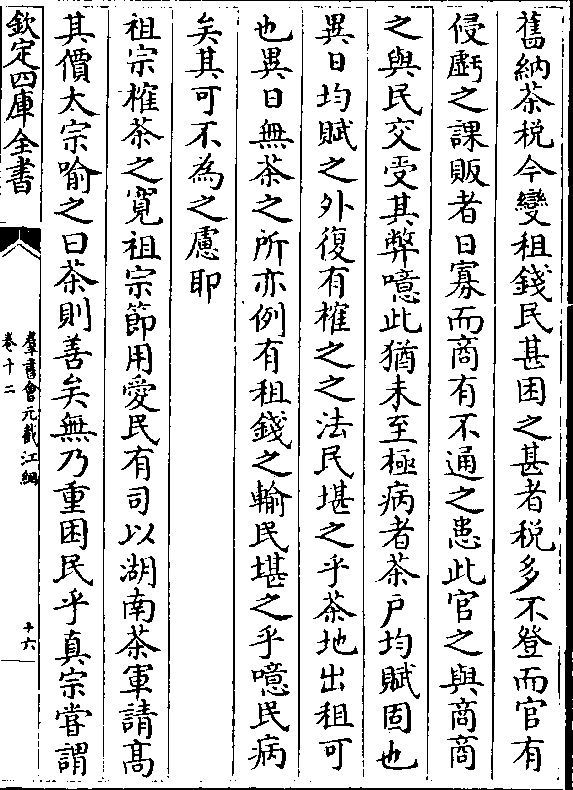 舊納茶税今變租錢民甚困之甚者税多不登而官有
侵虧之課販者日寡而商有不通之患此官之與商商
之與民交受其弊噫此猶未至極病者茶户均賦固也
異日均賦之外復有榷之之法民堪之乎茶地出租可
也異日無茶之所亦例有租錢之輸民堪之乎噫民病
矣其可不為之慮耶
祖宗榷茶之寬祖宗節用愛民有司以湖南茶軍請高
其價太宗喻之曰茶則善矣無乃重困民乎真宗嘗謂
欽定四庫全書
羣書會元截江網
卷十二
十六